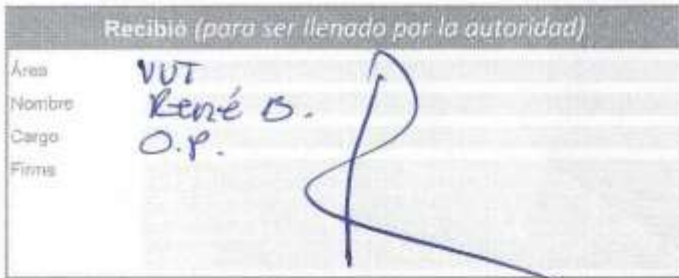 Recibió (para ser llenado por la autoridad)
Área VUT
Nombre René B.
Cargo O.P.
Firma